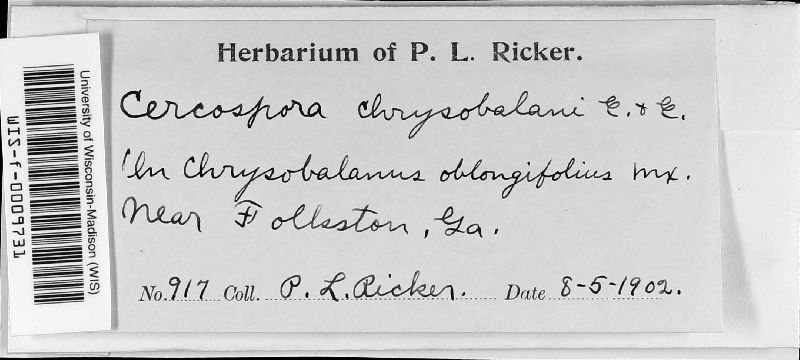 Herbarium of P. L. Ricker.
Cercospora chrysobalani E. & E.
On Chrysobalanus oblongifolius Mx.
Near Folkston, Ga.
No. 917 Coll. P. L. Ricker. Date 8-5-1902.
University of Wisconsin-Madison (WIS)
WIS-f-0009731